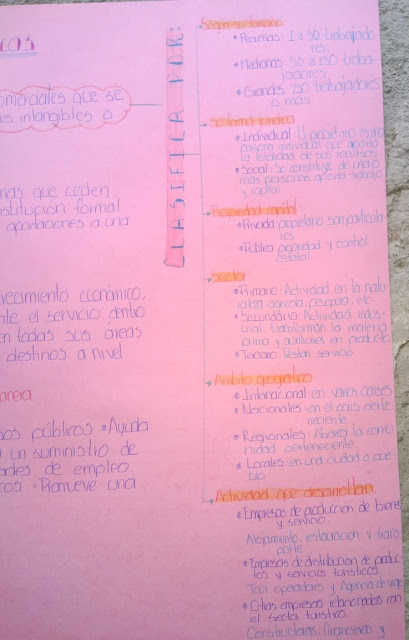 icos
omerciales que se
es intangibles o
nas que ceden
nstitución formal
aportaciones a una
recimiento económico,
nte el servicio dentro
en todas sus áreas
destinos a nivel
area
sos públicos • Ayuda
o un suministro de
ades de empleo
cos • Promueve una
CLASIFICA POR:
Según su tamaño
• Pequeñas: 1 a 50 trabajado
res.
• Medianas: 50 a 250 traba-
jadores.
• Grandes: 250 trabajadores
o más
Su forma jurídica
• Individual: El propietario es una
persona individual que aporta
la totalidad de sus recursos
• Social: Se constituye de una o
más personas aporta trabajo
y capital
Propiedad capital:
• Privada: propietario son particula
res
• Pública: propiedad y control
estatal
Sector
• Primario: Actividad en la natu
raleza agrícola, pesquera, etc.
• Secundario: Actividad indus-
trial, transforman la materia
prima y auxiliares en producto
• Terciario: Prestan servicio
Ámbito geográfico
• Internacional: en varios países
• Nacionales: en el país perte
neciente
• Regionales: Abarca la comu
nidad perteneciente.
• Locales: en una ciudad o pue
blo
Actividad que desarrollan
• Empresas de producción de bienes
y servicio.
Alojamiento, restauración y trans
porte
• Empresas de distribución de produc
tos y servicios turísticos.
Tour operadores y Agencia de viaje
• Otras empresas relacionadas con
el sector turístico.
Constructoras, financieros y